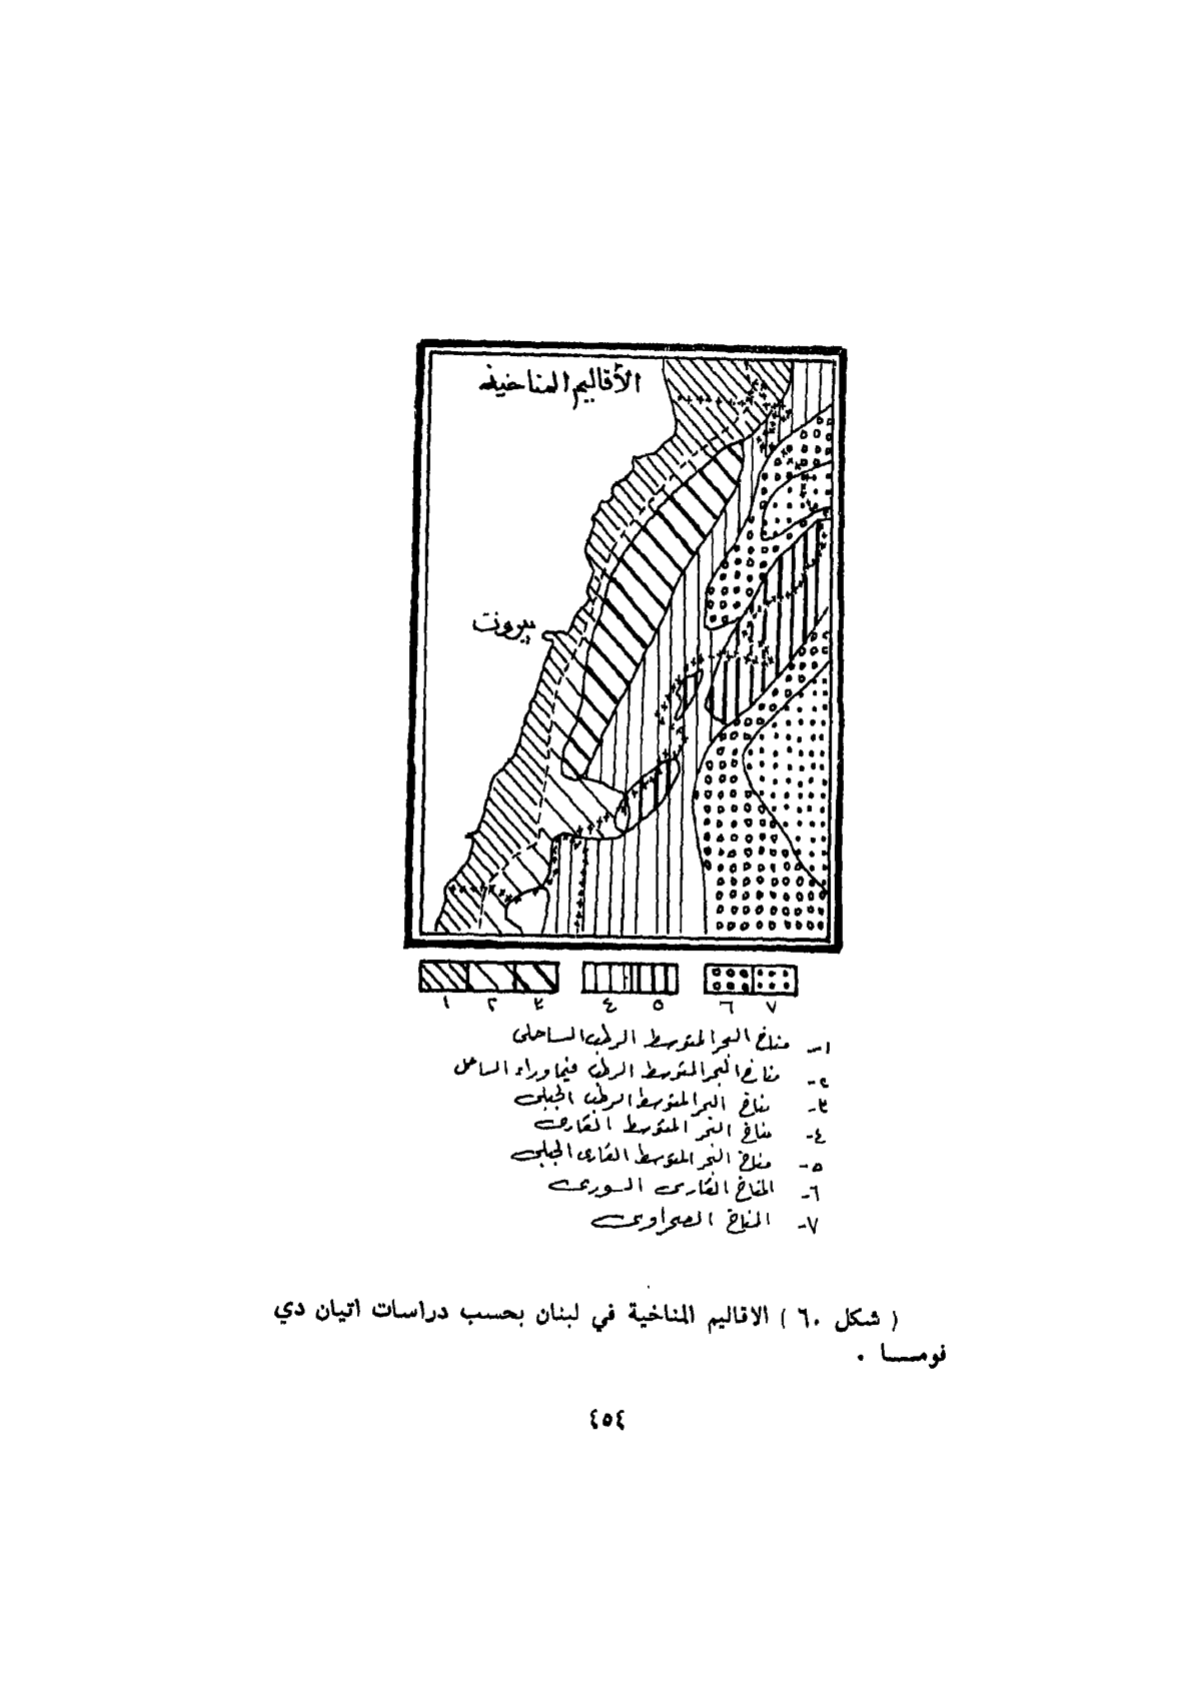 الأقاليم المناخية
بيروت
١ ٢ ٣ ٤ ٥ ٦ ٧
١- مناخ البحر المتوسط الرطب الساحلى
٢- مناخ البحر المتوسط الرطب فيما وراء الساحل
٣- مناخ البحر المتوسط الرطب الجبلى
٤- مناخ البحر المتوسط القارى
٥- مناخ البحر المتوسط القارى الجبلى
٦- المناخ القارى السورى
٧- المناخ الصحراوى
( شكل ٦٠ ) الاقاليم المناخية في لبنان بحسب دراسات اتيان دي
فومسا .
٤٥٤